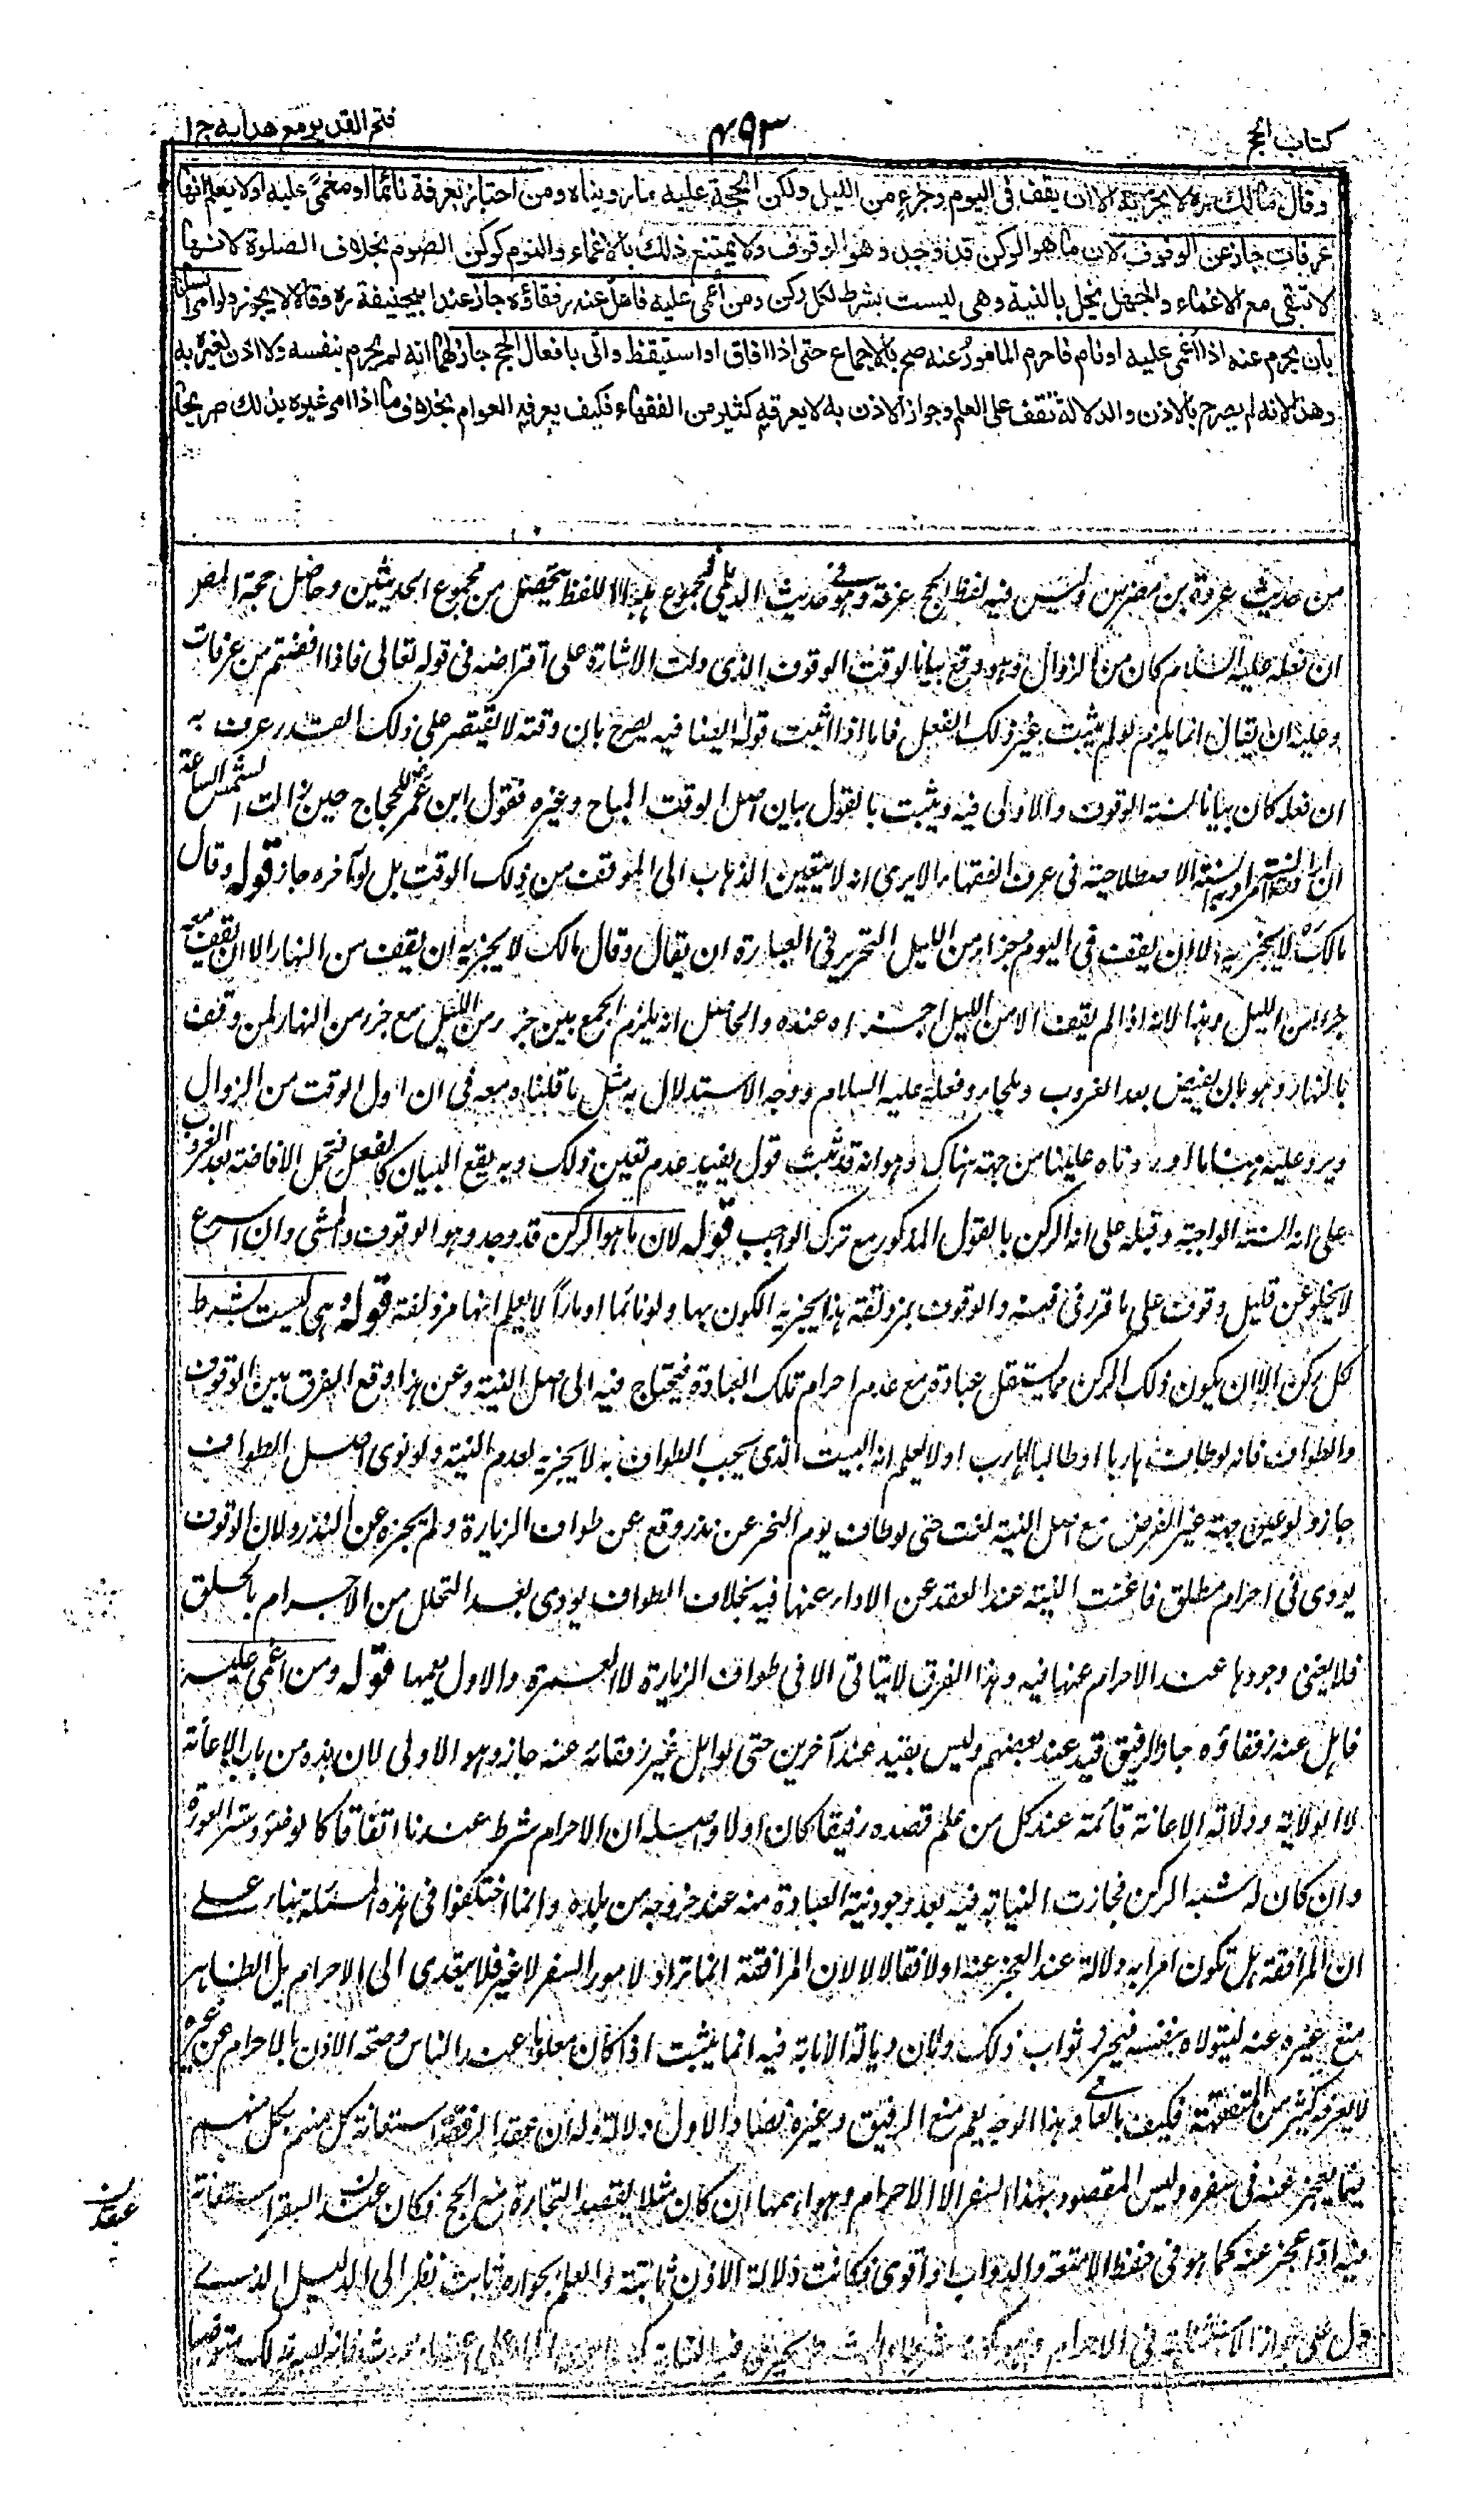 كتاب الحج
٤٩٣
فتح القدير مع هدايه ج ١
وقال مالك ره لا يجزيه الا ان يقف فى اليوم وجزء من الليل ولكن الحجة عليه ما رويناه ومن اجتاز بعرفة نائما او مغمى عليه او لا يعلم انها
عرفات جاز عن الوقوف لان ما هو الركن قد وجد وهو الوقوف ولا يمتنع ذلك بالاغماء والنوم كركن الصوم بخلاف الصلوة لانها
لا تبقى مع الاغماء والجهل يخل بالنية وهى ليست بشرط لكل ركن ومن اغمى عليه فاهل عنه رفقاؤه جاز عند ابيحنيفة ره وقالا لا يجوز ولو امر انسانا
بان يحرم عنه اذا اغمى عليه او نام فاحرم المامور عنه صح بالاجماع حتى اذا افاق او استيقظ واتى بافعال الحج جاز لهما انه لم يحرم بنفسه ولا اذن لغيره به
وهذا لانه لم يصرح بالاذن والدلالة تقف على العلم وجواز الاذن به لا يعرفه كثير من الفقهاء فكيف يعرفه العوام بخلاف ما اذا امر غيره بذلك صريحا
من حديث عروة بن مضرس وليس فيه لفظ الحج عرفة وهو فى حديث الديلى فمجموع هذا اللفظ يتحصل من مجموع الحديثين وحاصل حجة المصر
ان فعله عليه السلام كان من الزوال وهو وقع بيانا لوقت الوقوف الذى دلت الاشارة على افتراضه فى قوله تعالى فاذا افضتم من عرفات
وعليه ان يقال انما يلزم لو لم يثبت غير ذلك الفعل فاما اذا اثبت قوله ايضا فيه يصرح بان وقته لا يقتصر على ذلك القدر عرف به
ان فعله كان بيانا لسنة الوقوف والاولى فيه ويثبت بالقول بيان اصل الوقت المباح وغيره فقول ابن عمر للحجاج حين زالت الشمس الساعة
ان اردت السنة مراده السنة الاصطلاحية فى عرف الفقهاء الا يرى انه لا يتعين الذهاب الى الموقف من ذلك الوقت بل لو آخره جاز قوله وقال
مالك ره لا يجزيه الا ان يقف فى اليوم وجزء من الليل التحرير فى العبارة ان يقال وقال مالك لا يجزيه ان يقف من النهار الا ان يقف معه
جزء من الليل وهذا لانه اذا لم يقف الا من الليل اجزاه عنده والحاصل انه يلزم الجمع بين جزء من الليل مع جزء من النهار لمن وقف
بالنهار وهو بان يفيض بعد الغروب وملجاه وفعله عليه السلام ووجه الاستدلال به مثل ما قلناه معه فى ان اول الوقت من الزوال
ويرد عليه هنا ما اوردناه علينا من جهته هناك وهو انه قد ثبت قول يفيد عدم تعين ذلك وبه يقع البيان كالفعل فتحمل الافاضة بعد الغروب
على انه السنة الواجبة وقبله على انه الركن بالقول المذكور مع ترك الواجب قوله لان ما هو الركن قد وجد وهو الوقوف والمشى وان اسرع
لا يخلو عن قليل وقوف على ما قرر فى فنه والوقوف بمزدلفة هذا يجزيه الكون بها ولو نائما او مارا لا يعلم انها مزدلفة قوله وهى ليست بشرط
لكل ركن الا ان يكون ذلك الركن مما يستقل عبادة مع عدم احرام تلك العبادة فيحتاج فيه الى اصل النية وعن هذا وقع الفرق بين الوقوف
والطواف فانه لو طاف هاربا او طالبا لهارب او لا يعلم انه البيت الذى يجب الطواف به لا يجزيه لعدم النية ولو نوى اصل الطواف
جاز ولو عين جهة غير الفرض مع اصل النية لغت حتى لو طاف يوم النحر عن نذر وقع عن طواف الزيارة ولم يجزه عن النذر ولان الوقوف
يودى فى احرام مطلق فاغنت النية عند العقد عن الاداء عنها فيه بخلاف الطواف يؤدى بعد التحلل من الاحرام بالحلق
فلا يغنى وجودها عند الاحرام عنها فيه وهذا الفرق لا يتاتى الا فى طواف الزيارة لا العمرة والاول يعمها قوله ومن اغمى عليه
فاهل عنه رفقاؤه جاز الرفيق قيد عند بعضهم وليس بقيد عند آخرين حتى لو اهل غير رفقائه عنه جاز وهو الاولى لان هذه من باب الاعانة
لا الولاية ودلالة الاعانة قائمة عند كل من علم قصده رفيقا كان اولا واصله ان الاحرام شرط عندنا اتفاقا كالوضوء وستر العورة
وان كان له شبه الركن فجازت النيابة فيه بعد وجود نية العبادة منه عند خروجه من بلده وانما اختلفوا فى هذه المسئلة بناء على
ان المرافقة هل تكون امرا به دلالة عند العجز عنه اولا فقالا لا لان المرافقة انما تراد لامور السفر لا غير فلا يتعدى الى الاحرام بل الظاهر
منع غيره عنه ليتولاه بنفسه فيحرز ثواب ذلك ولان دلالة الانابة فيه انما يثبت اذا كان معلوما عند الناس وصحة الاذن بالاحرام عن غيره
لا يعرفه كثير من المتفقهة فكيف بالعامى وهذا الوجه يعم منع الرفيق وغيره نصا والاول دلالة وله ان عقد الرفقة استعانة كل منهم بكل منهم
فيما يعجز عنه فى سفره وليس المقصود بهذا السفر الا الاحرام وهو اهمها ان كان مثلا يقصد التجارة مع الحج فكان عقد السفر استعانة
عقد ن
فيه اذا عجز عنه كما هو فى حفظ الامتعة والدواب او اقوى فكانت دلالة الاذن ثابتة والعلم بجوازه ثابت نظرا الى الدليل الذى
دل على جواز الاستعانة فى الاحرام